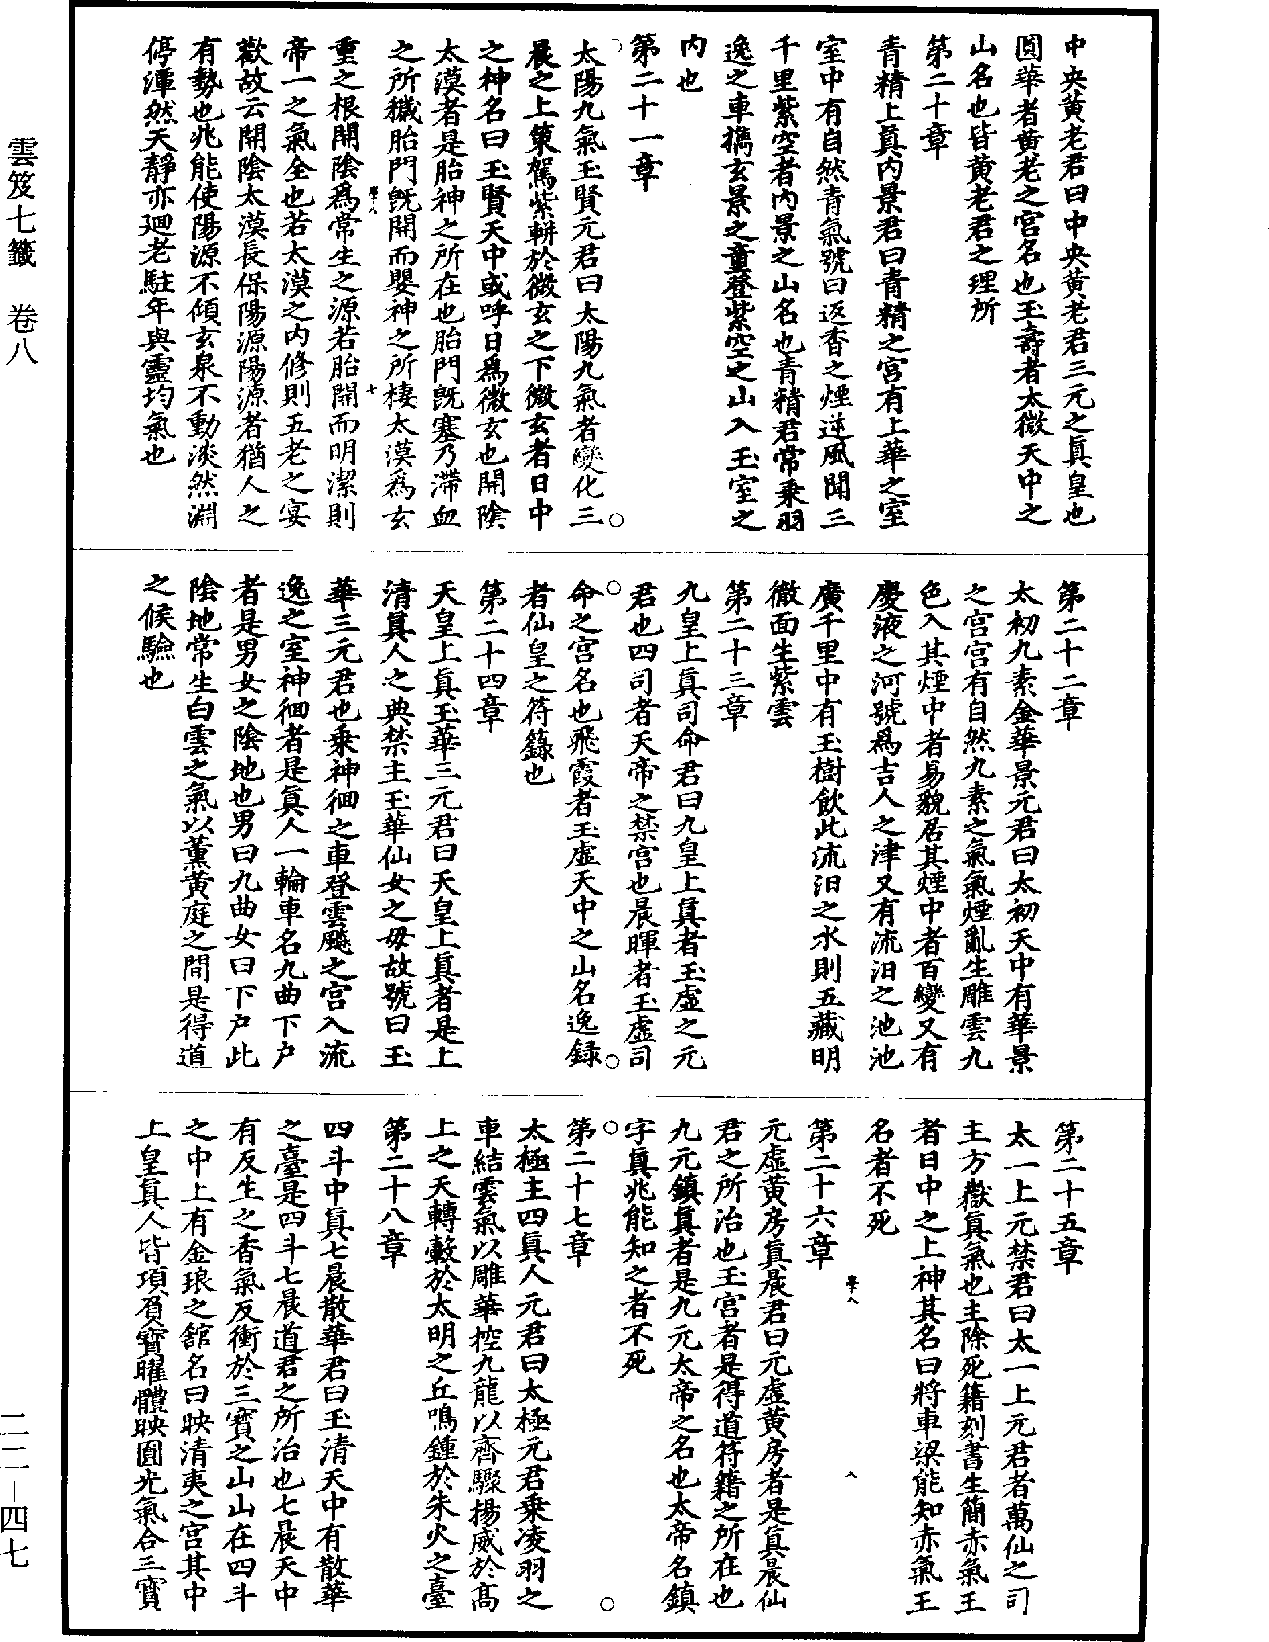 中央黄老君曰中央黄老君三元之真皇也
圓華者黄老之宫名也玉壽者太微天中之
山名也皆黄老君之理所
第二十章
青精上真内景君曰青精之宫有上華之室
室中有自然青氣號曰返香之煙逆風聞三
千里紫空者内景之山名也青精君常乘羽
逸之車擕玄景之童登紫空之山入玉室之
内也
第二十一章
太陽九氣玉賢元君曰太陽九氣者變化三
晨之上策駕紫軿於微玄之下微玄者日中
之神名曰玉賢天中或呼日爲微玄也開陰
太漠者是胎神之所在也胎門既塞乃滯血
之所穢胎門既開而嬰神之所棲太漠爲玄
學八 十
重之根開陰爲常生之源若胎開而明潔則
帝一之氣全也若太漠之内修則五老之宴
歡故云開陰太漠長保陽源陽源者猶人之
有勢也兆能使陽源不傾玄泉不動淡然淵
停渾然天靜亦迴老駐年與靈均氣也
第二十二章
太初九素金華景元君曰太初天中有華景
之宫宫有自然九素之氣氣煙亂生雕雲九
色入其煙中者易貌居其煙中者百變又有
慶液之河號爲吉人之津又有流汨之池池
廣千里中有玉樹飲此流汨之水則五藏明
徹面生紫雲
第二十三章
九皇上真司命君曰九皇上真者玉虚之元
君也四司者天帝之禁宫也晨暉者玉虚司
命之宫名也飛霞者玉虚天中之山名逸録
者仙皇之符籙也
第二十四章
天皇上真玉華三元君曰天皇上真者是上
清真人之典禁主玉華仙女之母故號曰玉
華三元君也乘神徊之車登雲飈之宫入流
逸之室神徊者是真人一輪車名九曲下户
者是男女之陰地也男曰九曲女曰下户此
陰地常生白雲之氣以薰黄庭之間是得道
之候驗也
第二十五章
太一上元禁君曰太一上元君者萬仙之司
主方嶽真氣也主除死籍刻書生簡赤氣王
者日中之上神其名曰將車梁能知赤氣王
名者不死
學八 八
第二十六章
元虚黄房真晨君曰元虚黄房者是真晨仙
君之所治也玉宫者是得道符籍之所在也
九元鎮真者是九元太帝之名也太帝名鎮
字真兆能知之者不死
第二十七章
太極主四真人元君曰太極元君乘凌羽之
車結雲氣以雕華控九龍以齊驟揚威於高
上之天轉轂於太明之丘鳴鍾於朱火之臺
第二十八章
四斗中真七晨散華君曰玉清天中有散華
之臺是四斗七晨道君之所治也七晨天中
有反生之香氣反衝於三寶之山山在四斗
之中上有金琅之舘名曰映清夷之宫其中
上皇真人皆項負寶曜體映圓光氣合三寶
雲笈七籤　卷八
二二—四七